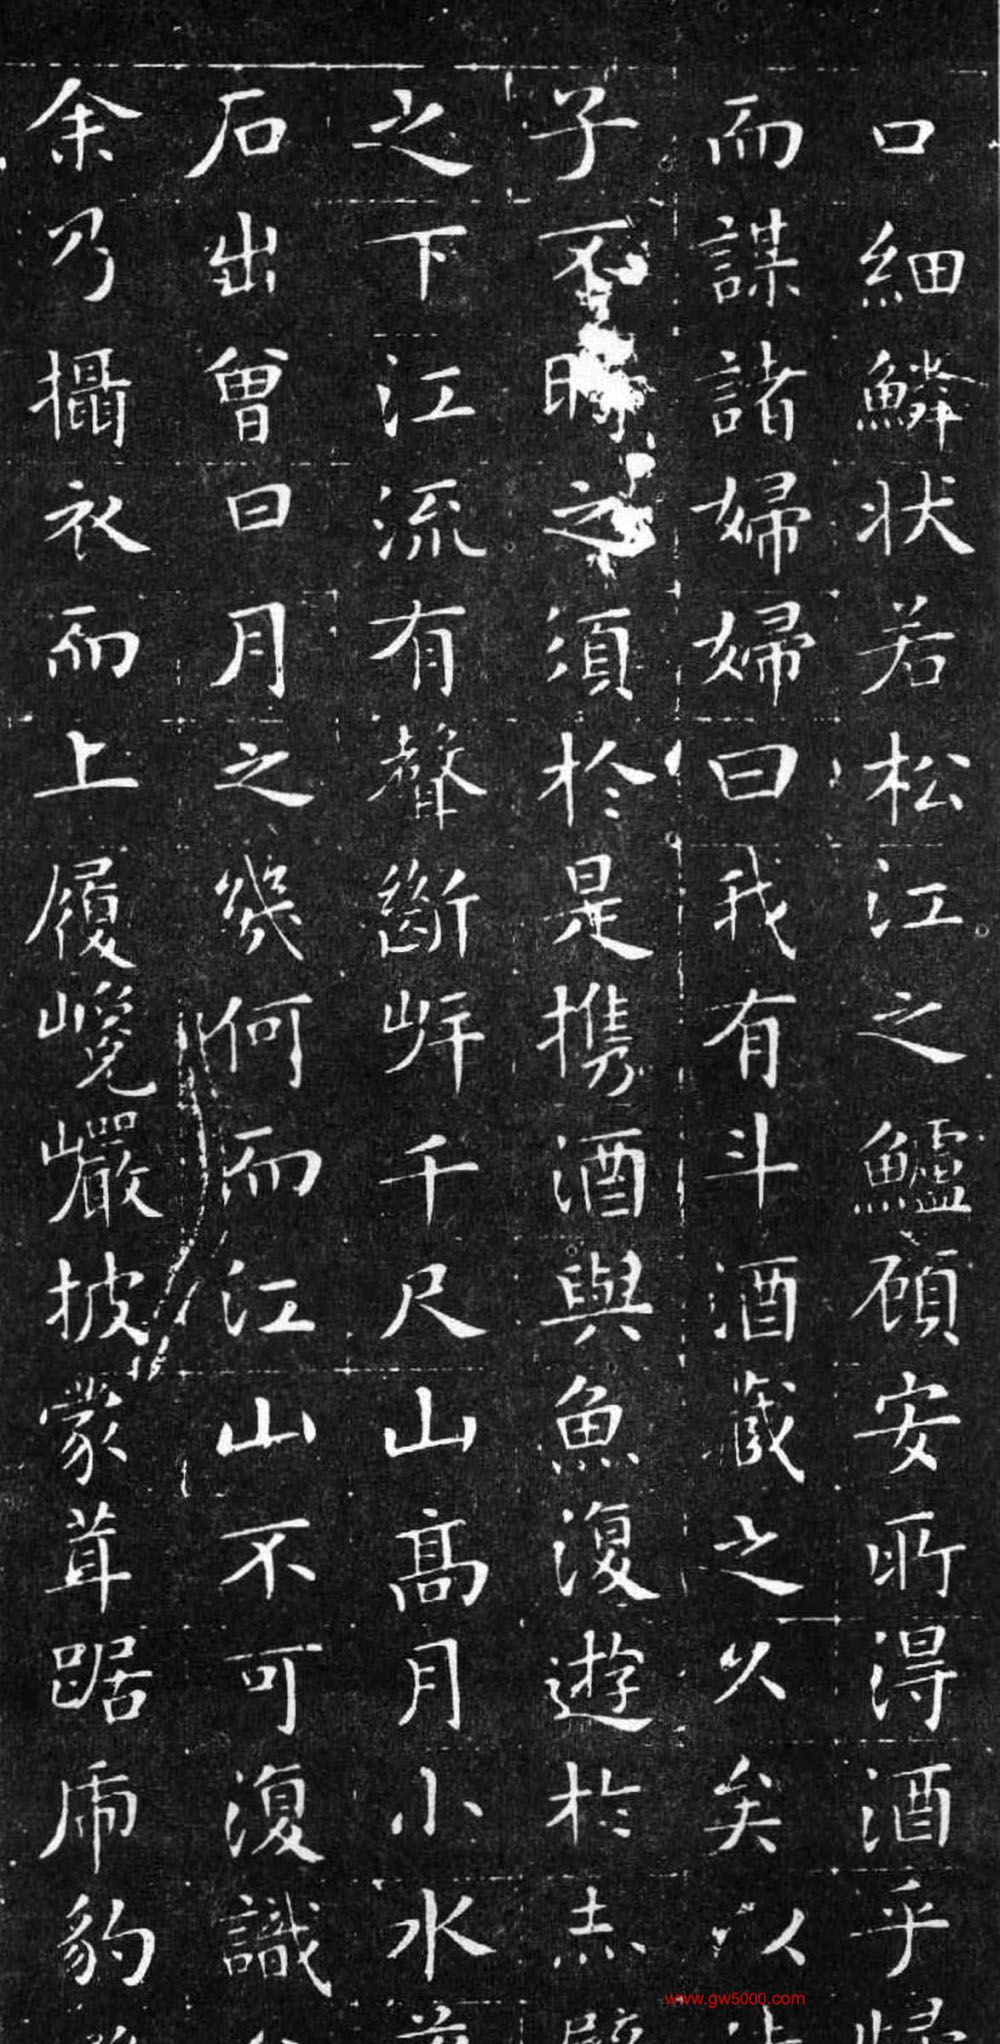 口細鱗狀若松江之鱸顧安所得酒乎
而謀諸婦婦曰我有斗酒藏之久矣以
子不時之須於是攜酒與魚復遊於赤
之下江流有聲斷岸千尺山高月小水
石出曾日月之幾何而江山不可復識
余乃攝衣而上履巉巖披蒙茸踞虎豹
www.gw5000.com